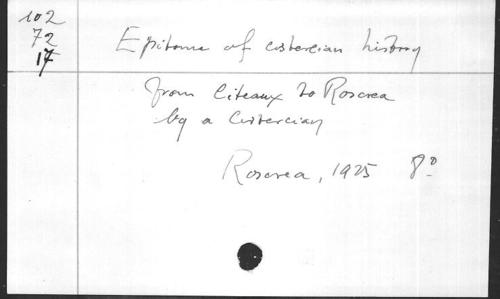 102
72
17
Epitome of cistercian history
from Citeaux to Roscrea
by a Cistercian
Roscrea, 1925 8°